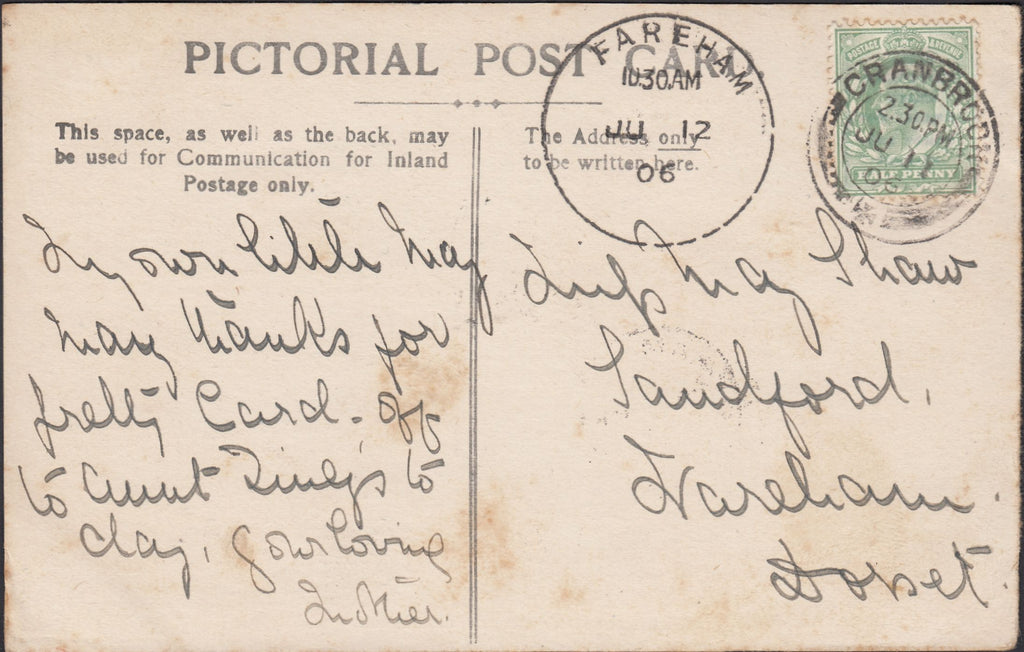 PICTORIAL POST CARD.
This space, as well as the back, may
be used for Communication for Inland
Postage only.
The Address only
to be written here.
FAREHAM
10.30AM
JU 12
06
POSTAGE & REVENUE
HALF PENNY
CRANBROOK
2.30.PM
JU 11
06
My own little May
Many thanks for
pretty Card. Off
to Aunt to
day, Your loving
Mother.
Miss May Shaw
Sandford,
Wareham.
Dorset.